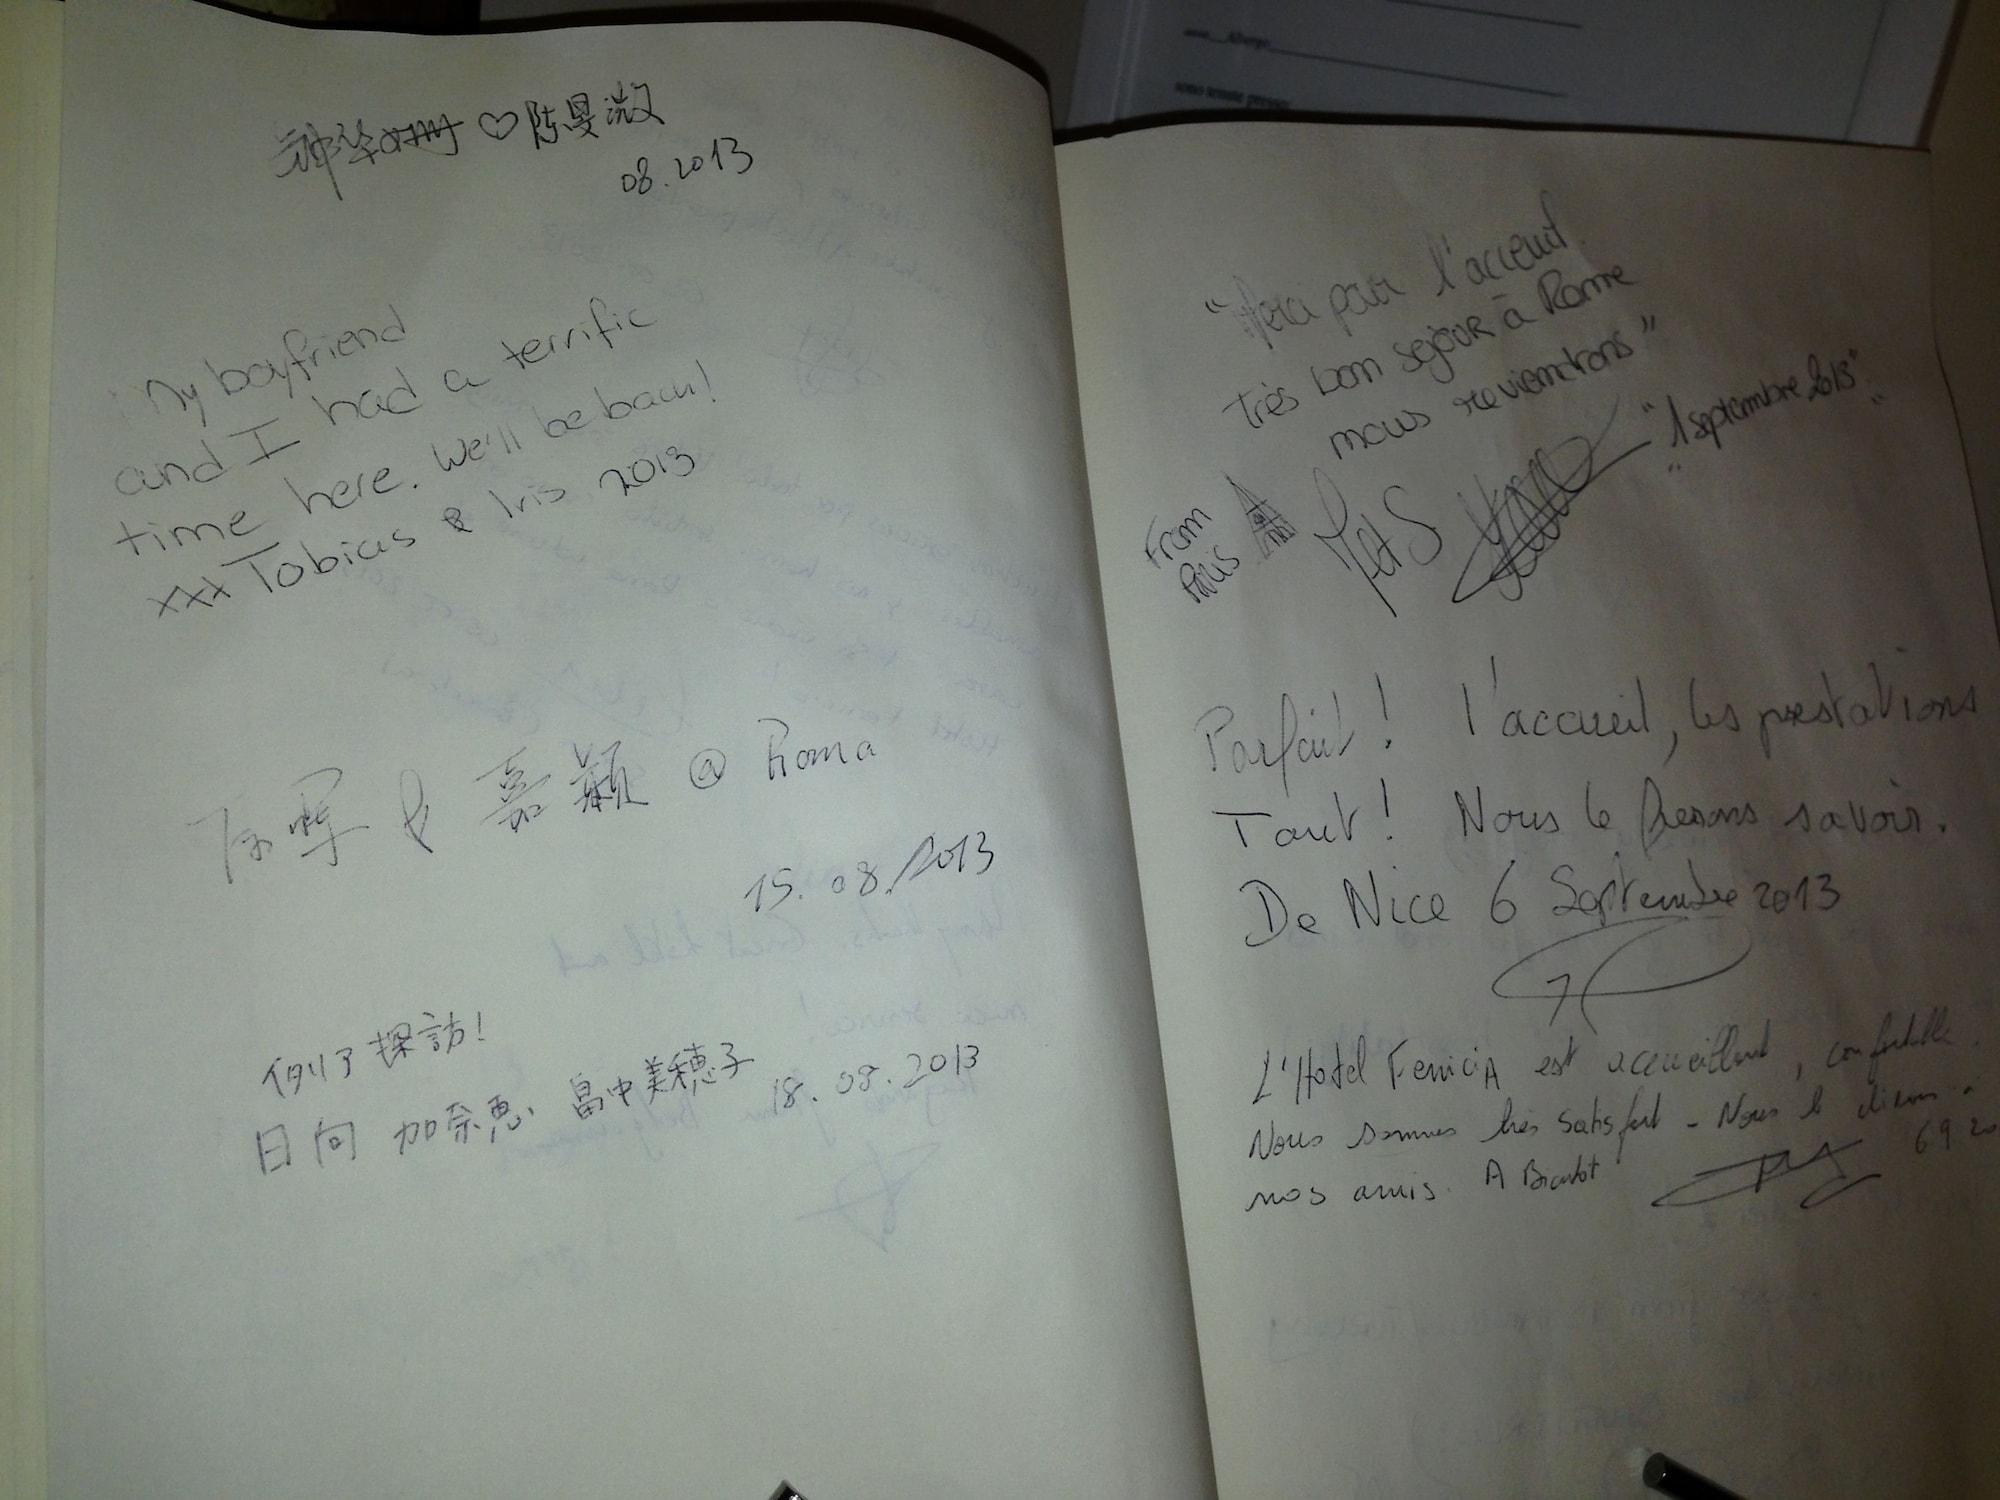 ♡陈旻溦
08.2013
My boyfriend
and I had a terrific
time here. We'll be back!
xxx Tobias & Iris 2013
& 嘉颖 @ Roma
15.08.2013
探訪!
日向 加奈恵 畠中美穂子 18.08.2013
"Merci pour l'acceuil
très bon séjour à Rome
nous reviendrons"
"1 septembre 2013"
From
Paris
Parfait! l'accueil, les prestations
Tout! Nous le ferons savoir.
De Nice 6 Septembre 2013
L'Hotel FeniciA est accueillant, confortable.
Nous sommes très satisfait - Nous le dirons à
nos amis. A Bientot 6 9 20